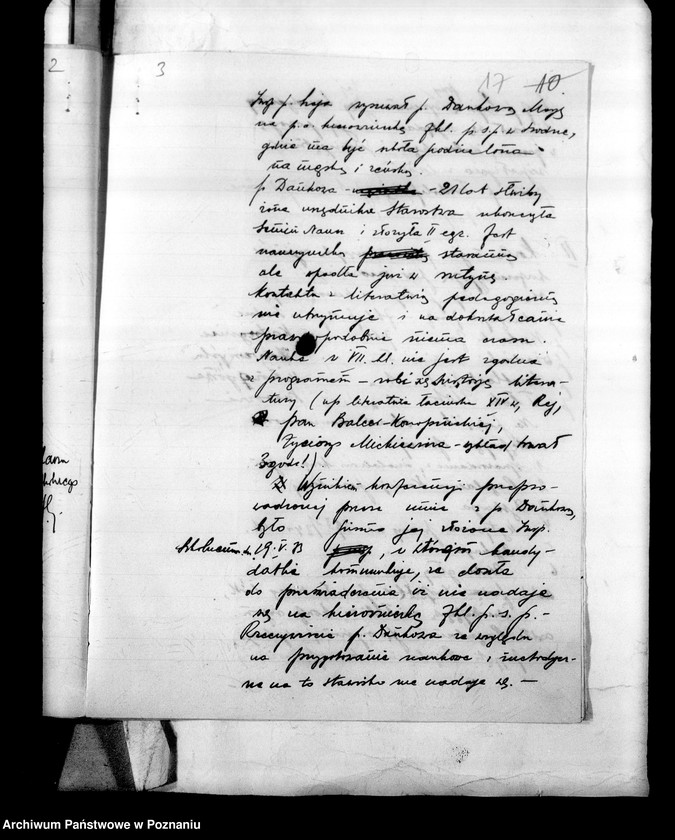 2
3
17 10
Insp. p. Leja p. Dańkową
na p.o. kierowniczkę 7kl. p. s. p. w Środzie,
gdzie ma być szkoła podzielona
na męską i żeńską.
p. Dańkowa - 21 lat służby
żona urzędnika Starostwa ukończyła
Semin. Naucz. i złożyła II egz. Jest
nauczycielką staranną
ale opadła już w rutynę.
Kontaktu z literaturą pedagogiczną
nie utrzymuje i na dokształcanie
prawdopodobnie niema czasu.
Nauka w VII. kl. nie jest zgodna
z programem - robi się historję litera-
tury (np literatura łacińska XIV w, Rej,
Pan Balcer - Konopnickiej,
Życiorys Mickiewicza - wykład trwał
3 godz!)
Wynikiem konferencji przepro-
wadzonej przeze mnie z p. Dańkową
było pismo jej złożone Insp.
Szkolnemu dn. 19.V.33, w którym kandy-
datka komunikuje, że doszła
do przeświadczenia iż nie nadaje
się na kierowniczkę 7kl. p. s. p. -
Rzeczywiście p. Dańkowa ze względu
na przygotowanie naukowe i metodycz-
ne na to stanowisko nie nadaje się. -
Archiwum Państwowe w Poznaniu